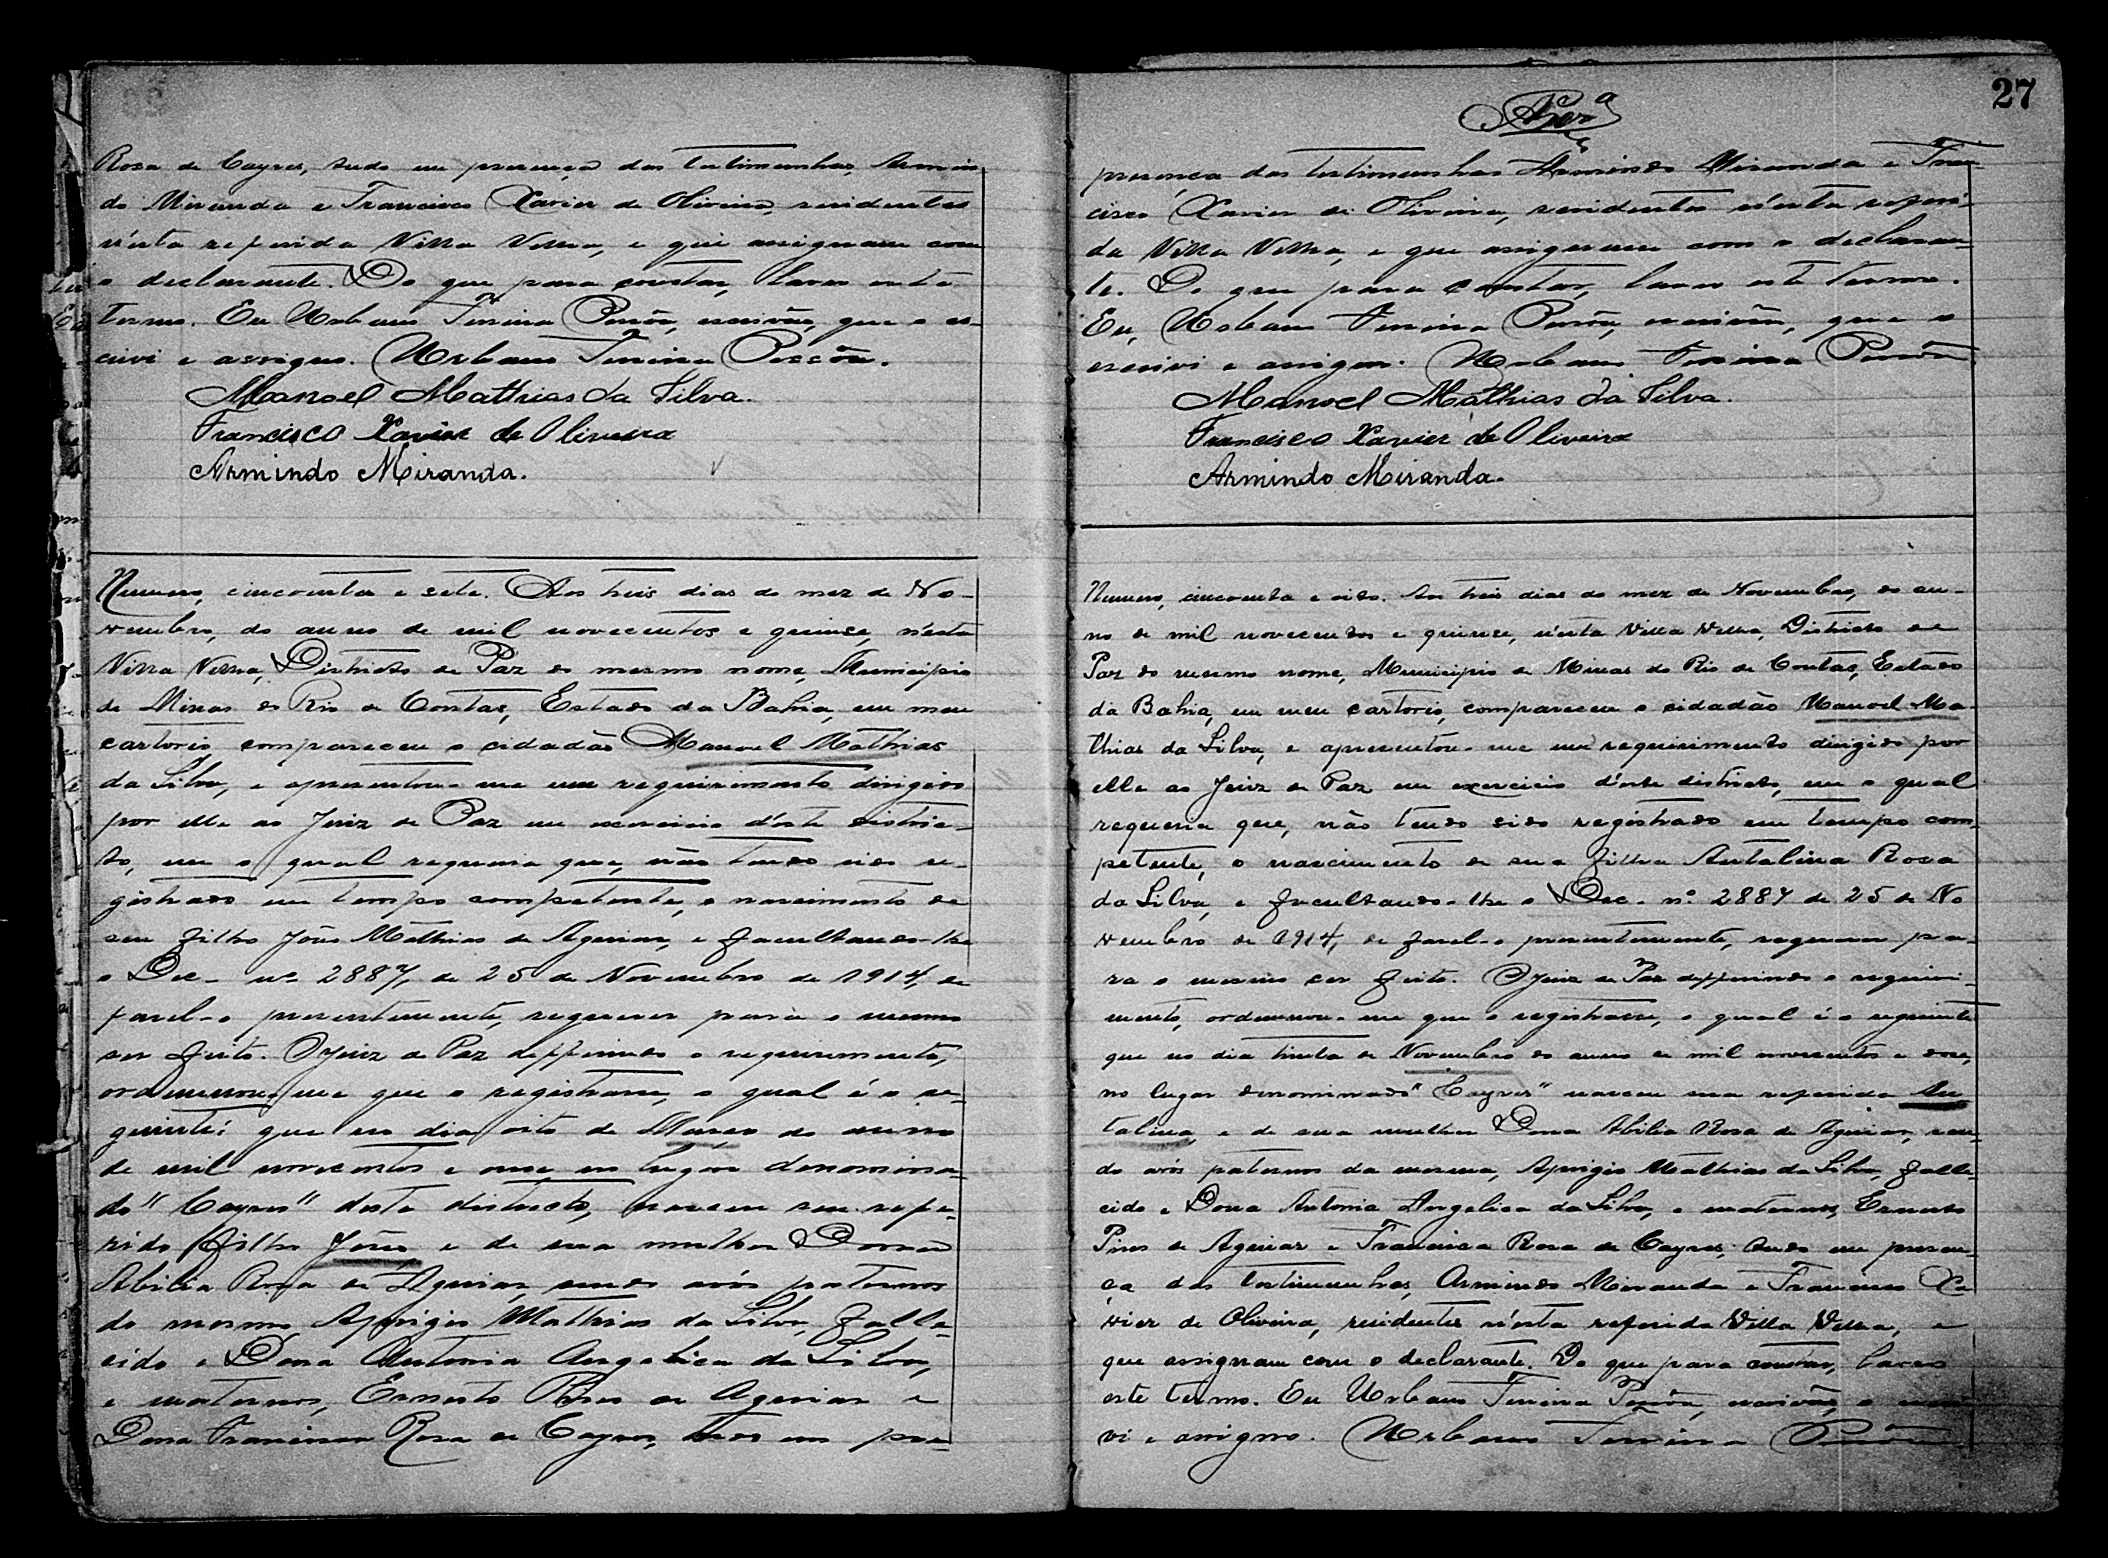 Rosa de Cayres, tudo em presença das testimunhas, Armin-
do Miranda e Francisco Xavier de Oliveira, residentes
n'esta referida Villa Velha, e que assignam com
o declarante. Do que para constar, lavro este
termo. Eu Urbano Pessôa, escrivão, que o es-
crivi e assigno. Urbano Pessôa.
Manoel Mathias da Silva.
Francisco Xavier de Oliveira
Armindo Miranda.
Numero, cincoenta e sete. Aos treis dias do mez de No-
vembro, do anno de mil novecentos e quinse, n'esta
Villa Velha, Districto de Paz do mesmo nome, Municipio
de Minas do Rio de Contas, Estado da Bahia, em meu
cartorio compareceu o cidadão Manoel Mathias
da Silva, e apresentou-me um requirimento dirigido
por elle ao Juiz de Paz em exercicio d'este distric-
to, em o qual requeria que, não tendo sido re-
gistrado em tempo competente, o nascimento de
seu filho João Mathias de Aguiar, e facultando-lhe
o Dec. nº 2887, de 25 de Novembro de 1914, de
fasel-o presentemente, requeria para o mesmo
ser feito. O Juiz de Paz defferindo o requirimento,
ordennou-me que o registrasse, o qual é o se-
guinte: que no dia oito de Março do anno
de mil novecentos e onse no lugar denomina-
do "Cayres" deste districto, nasceu seu refe-
rido filho João e de sua mulher Dona
Abilia Rosa de Aguiar, sendo avós paternos
do mesmo Aprigio Mathias da Silva, falle-
cido e Dona Antonia Angelica da Silva,
e maternos, Ernesto Pires de Aguiar e
Dona Francisca Rosa de Cayres, tudo em pre-
27
presença das testimunhas Armindo Miranda e Fran-
cisco Xavier de Oliveira, residentes n'esta referi-
da Villa Velha, e que assignam com o declaran-
te. Do que para constar, lavro este termo.
Eu, Urbano Pessôa, escrivão, que o
escrivi e assigno. Urbano Pessôa
Manoel Mathias da Silva.
Francisco Xavier de Oliveira
Armindo Miranda.
Numero, cincoenta e oito. Aos treis dias do mez de Novembro, do an-
no de mil novecentos e quinse, n'esta Villa Velha, Districto de
Paz do mesmo nome, Municipio de Minas do Rio de Contas, Estado
da Bahia, em meu cartorio, compareceu o cidadão Manoel Ma-
thias da Silva, e apresentou-me um requirimento dirigido por
elle ao Juiz de Paz em exercicio d'este districto, em o qual
requeria que, não tendo sido registrado em tempo com-
petente, o nascimento de sua filha Antalina Rosa
da Silva, e facultando-lhe o Dec. nº 2887 de 25 de No
vembro de 1914, de fasel-o presentemente, requeria pa-
ra o mesmo ser feito. O Juiz de Paz defferindo o requiri-
mento, ordennou-me que o registrasse, o qual é o seguinte
que no dia trinta de Novembro do anno de mil novecentos e dose,
no lugar denominado "Cayres" nasceu sua referida An
talina, e de sua mulher Dona Abilia Rosa de Aguiar, sen-
do avós paternos da mesma, Aprigio Mathias da Silva, falle-
cido e Dona Antonia Angelica da Silva, e maternos, Ernesto
Pires de Aguiar e Francisca Rosa de Cayres, tudo em presen-
ça das testimunhas, Armindo Miranda e Francisco Xa
vier de Oliveira, residentes n'esta referida Villa Velha, e
que assignam com o declarante. Do que para constar, lavro
este termo. Eu Urbano Pessôa, escrivão, o escri
vi e assigno. Urbano Pessôa